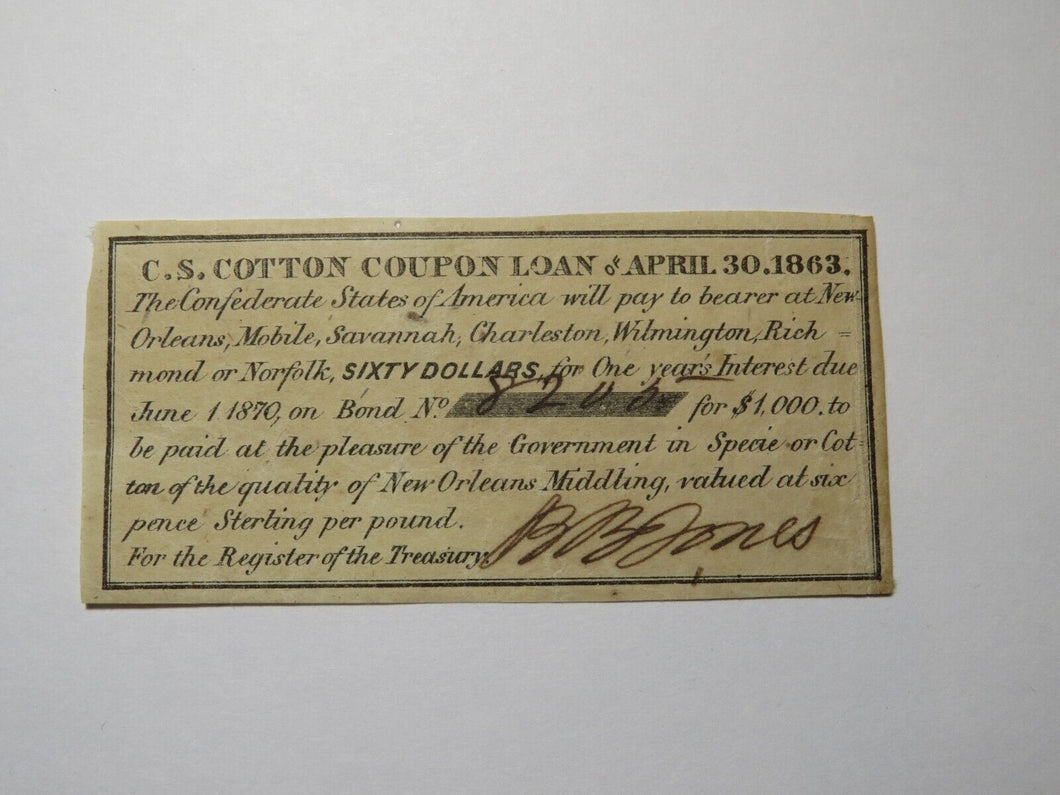 C.S. COTTON COUPON LOAN of APRIL 30.1863.
The Confederate States of America will pay to bearer at New-
Orleans, Mobile, Savannah, Charleston, Wilmington, Rich=
mond or Norfolk, SIXTY DOLLARS, for One year's Interest due
June 1 1870, on Bond No. for $1,000. to
be paid at the pleasure of the Government in Specie or Cot=
ton of the quality of New Orleans Middling, valued at six
pence Sterling per pound.
For the Register of the Treasury. B B Jones